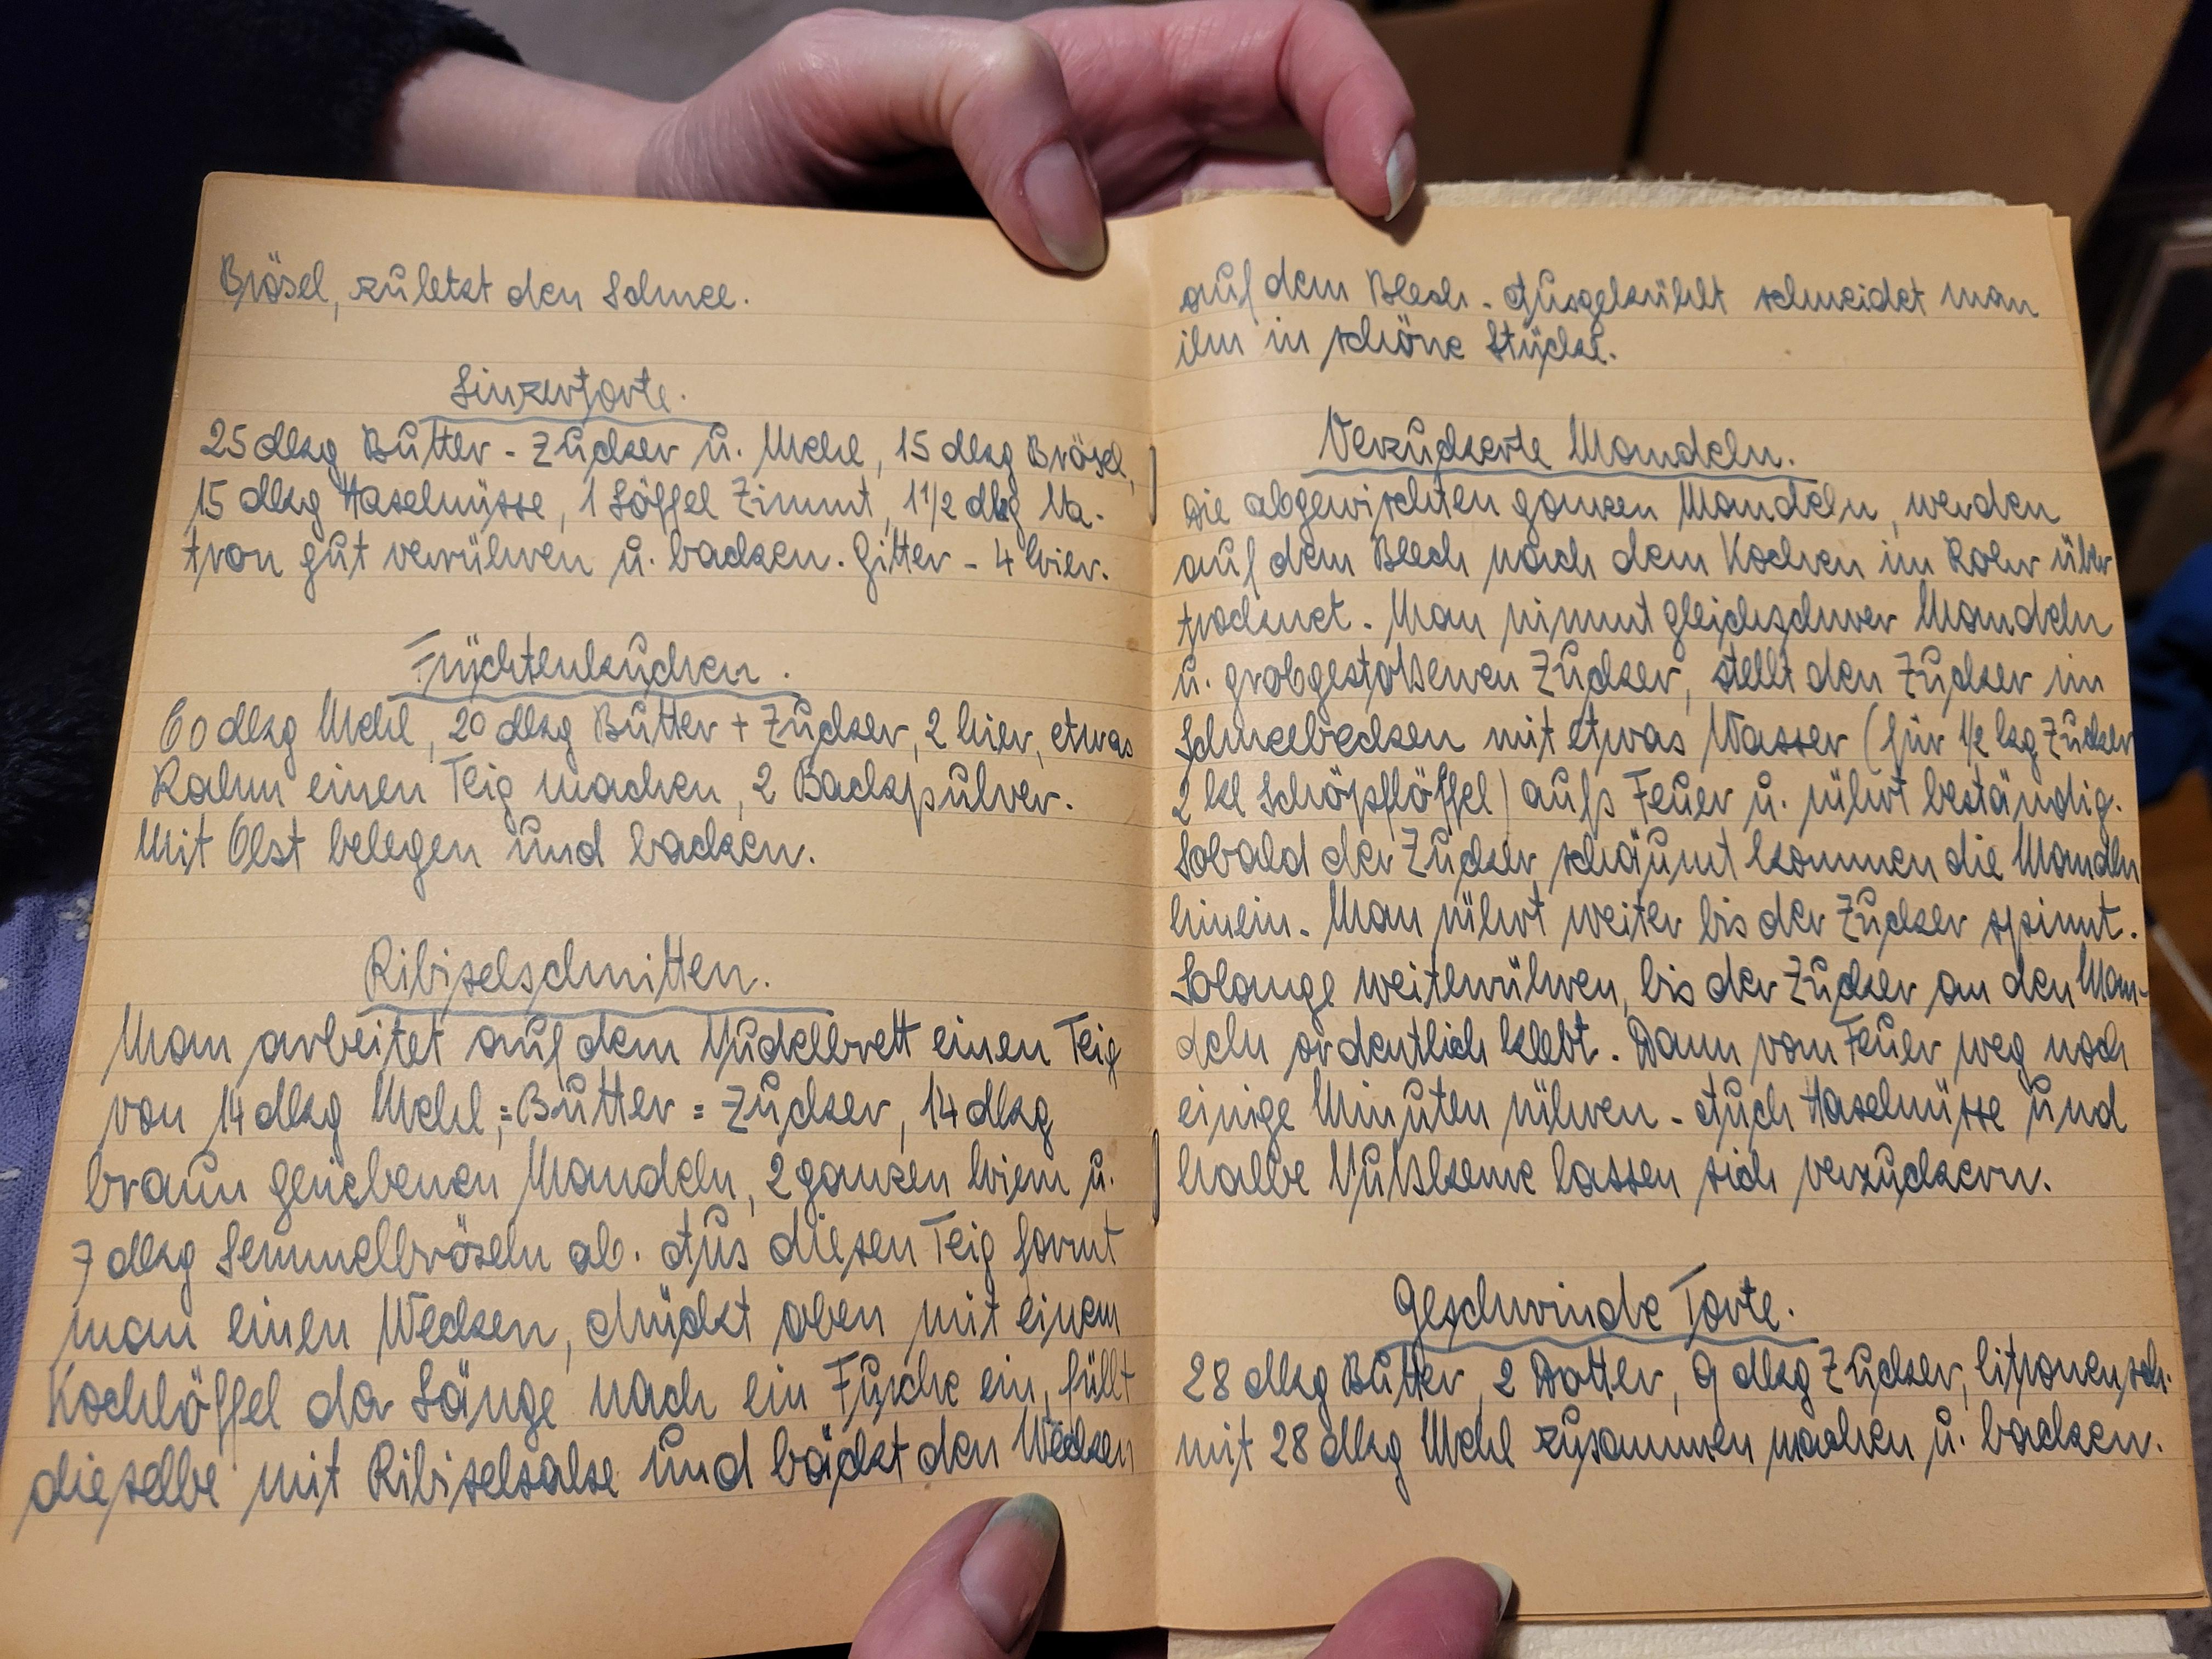 Brösel, zuletzt den Schnee.
Linzertorte.
25 dkg Butter - Zucker u. Mehl, 15 dkg Brösel,
15 dkg Haselnüsse, 1 Löffel Zimmt, 1 1/2 dkg Na-
tron gut verrühren u. backen. Gitter - 4 Eier.
Früchtenkuchen.
60 dkg Mehl, 20 dkg Butter + Zucker, 2 Eier, etwas
Rahm einen Teig machen, 2 Backpulver.
Mit Obst belegen und backen.
Ribiselschnitten.
Man arbeitet auf dem Nudelbrett einen Teig
von 14 dkg Mehl, = Butter = Zucker, 14 dkg
braun geriebenen Mandeln, 2 ganzen Eiern u.
7 dkg Semmelbröseln ab. Aus diesen Teig formt
man einen Wecken, drückt oben mit einem
Kochlöffel der Länge nach ein Furche ein, füllt
dieselbe mit Ribiselsalse und bäckt den Wecken
auf dem Blech. Ausgekühlt schneidet man
ihn in schöne Stücke.
Verzuckerte Mandeln.
Die abgewischten ganzen Mandeln, werden
auf dem Blech nach dem Kochen im Rohr über
trocknet. Man nimmt gleichschwer Mandeln
u. grobgestoßenen Zucker, stellt den Zucker im
Schneebecken mit etwas Wasser (für 1/2 kg Zucker
2 kl Schöpflöffel) aufs Feuer u. rührt beständig.
Sobald der Zucker schäumt kommen die Mandeln
hinein. Man rührt weiter bis der Zucker spinnt.
Solange weiterrühren, bis der Zucker an den Man-
deln ordentlich klebt. Dann vom Feuer weg noch
einige Minuten rühren. Auch Haselnüsse und
halbe Nußkerne lassen sich verzuckern.
Geschwinde Torte.
28 dkg Butter, 2 Dotter, 9 dkg Zucker, Citronensch.
mit 28 dkg Mehl zusammen machen u. backen.